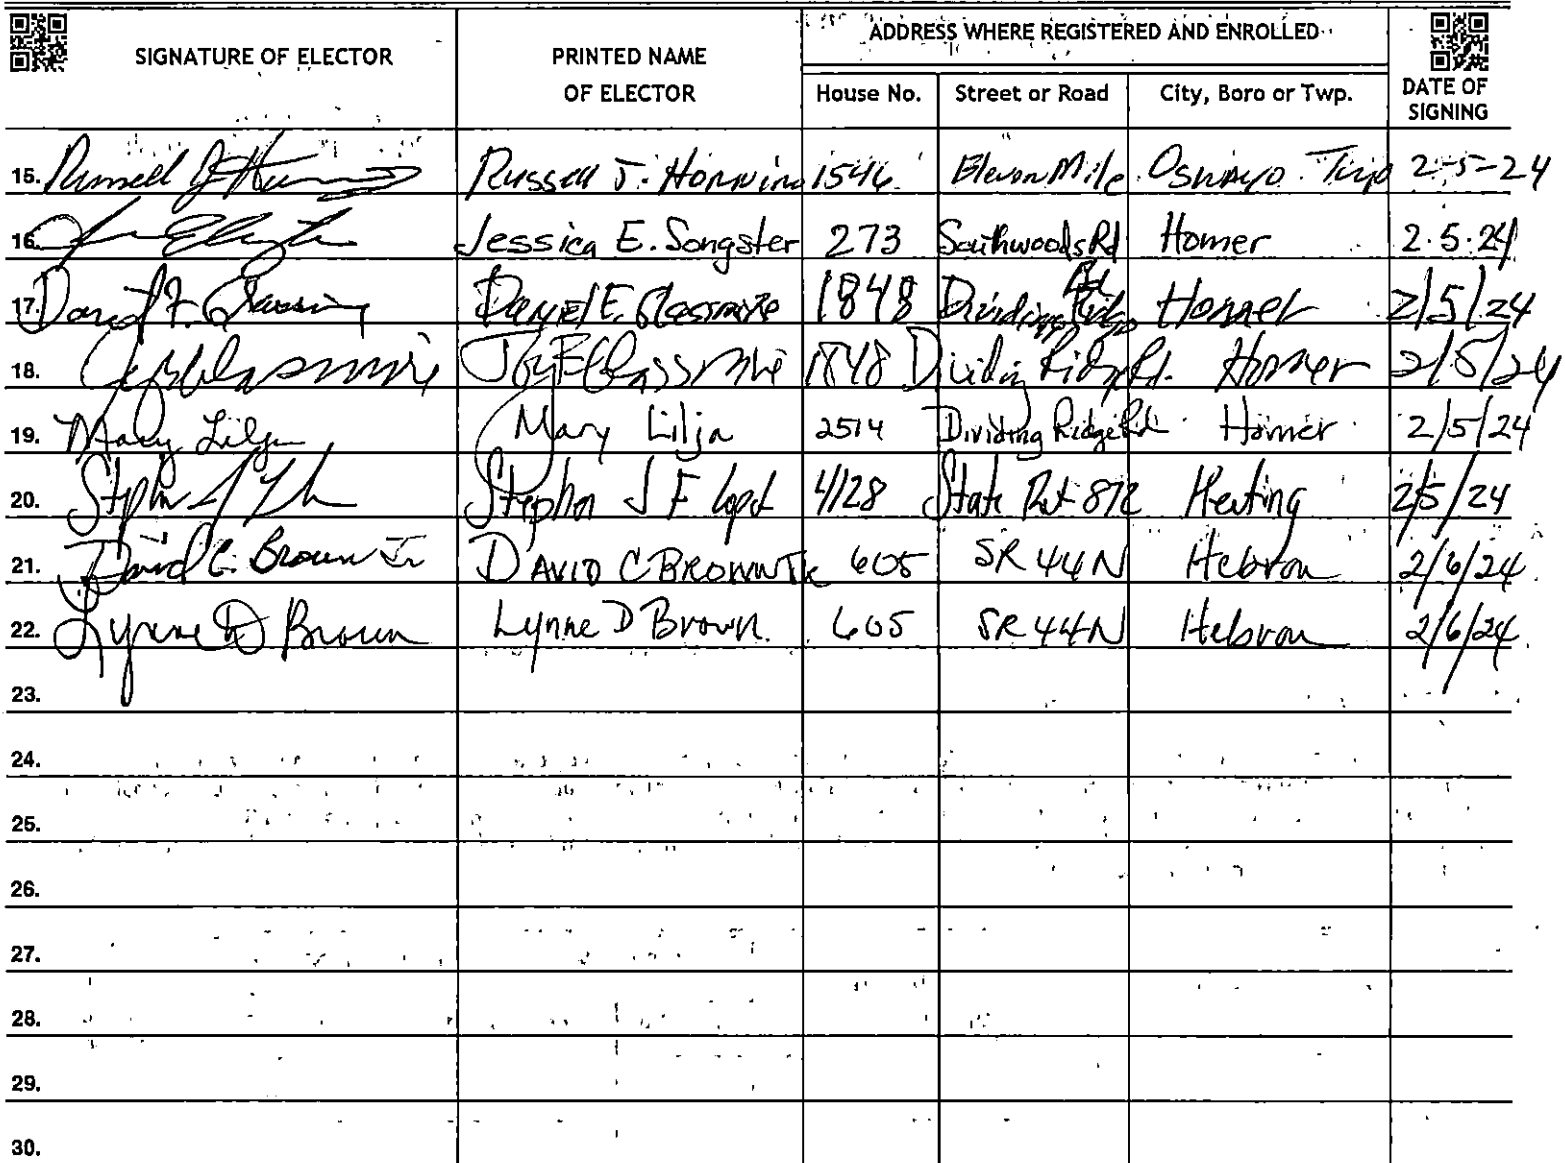 SIGNATURE OF ELECTOR
PRINTED NAME OF ELECTOR
ADDRESS WHERE REGISTERED AND ENROLLED
House No. Street or Road City, Boro or Twp.
DATE OF SIGNING
15. Russell J. Horning 1546 Eleven Mile Oswayo Twp 2-5-24
16. Jessica E. Songster 273 Southwoods Rd Homer 2.5.24
17. Daniel E. Glassmire 1848 Dividing Ridge Rd Homer 2/5/24
18. Joy E Glassmire 1848 Dividing Ridge Rd. Homer 2/5/24
19. Mary Lilja Mary Lilja 2514 Dividing Ridge Rd Homer 2/5/24
20. Stephen J F 4128 State Rt 872 2/5/24
21. David C. Brown Jr DAVID C BROWN JR 605 SR 44N Hebron 2/6/24
22. Lynne D Brown Lynne D Brown. 605 SR 44N Hebron 2/6/24
23.
24.
25.
26.
27.
28.
29.
30.